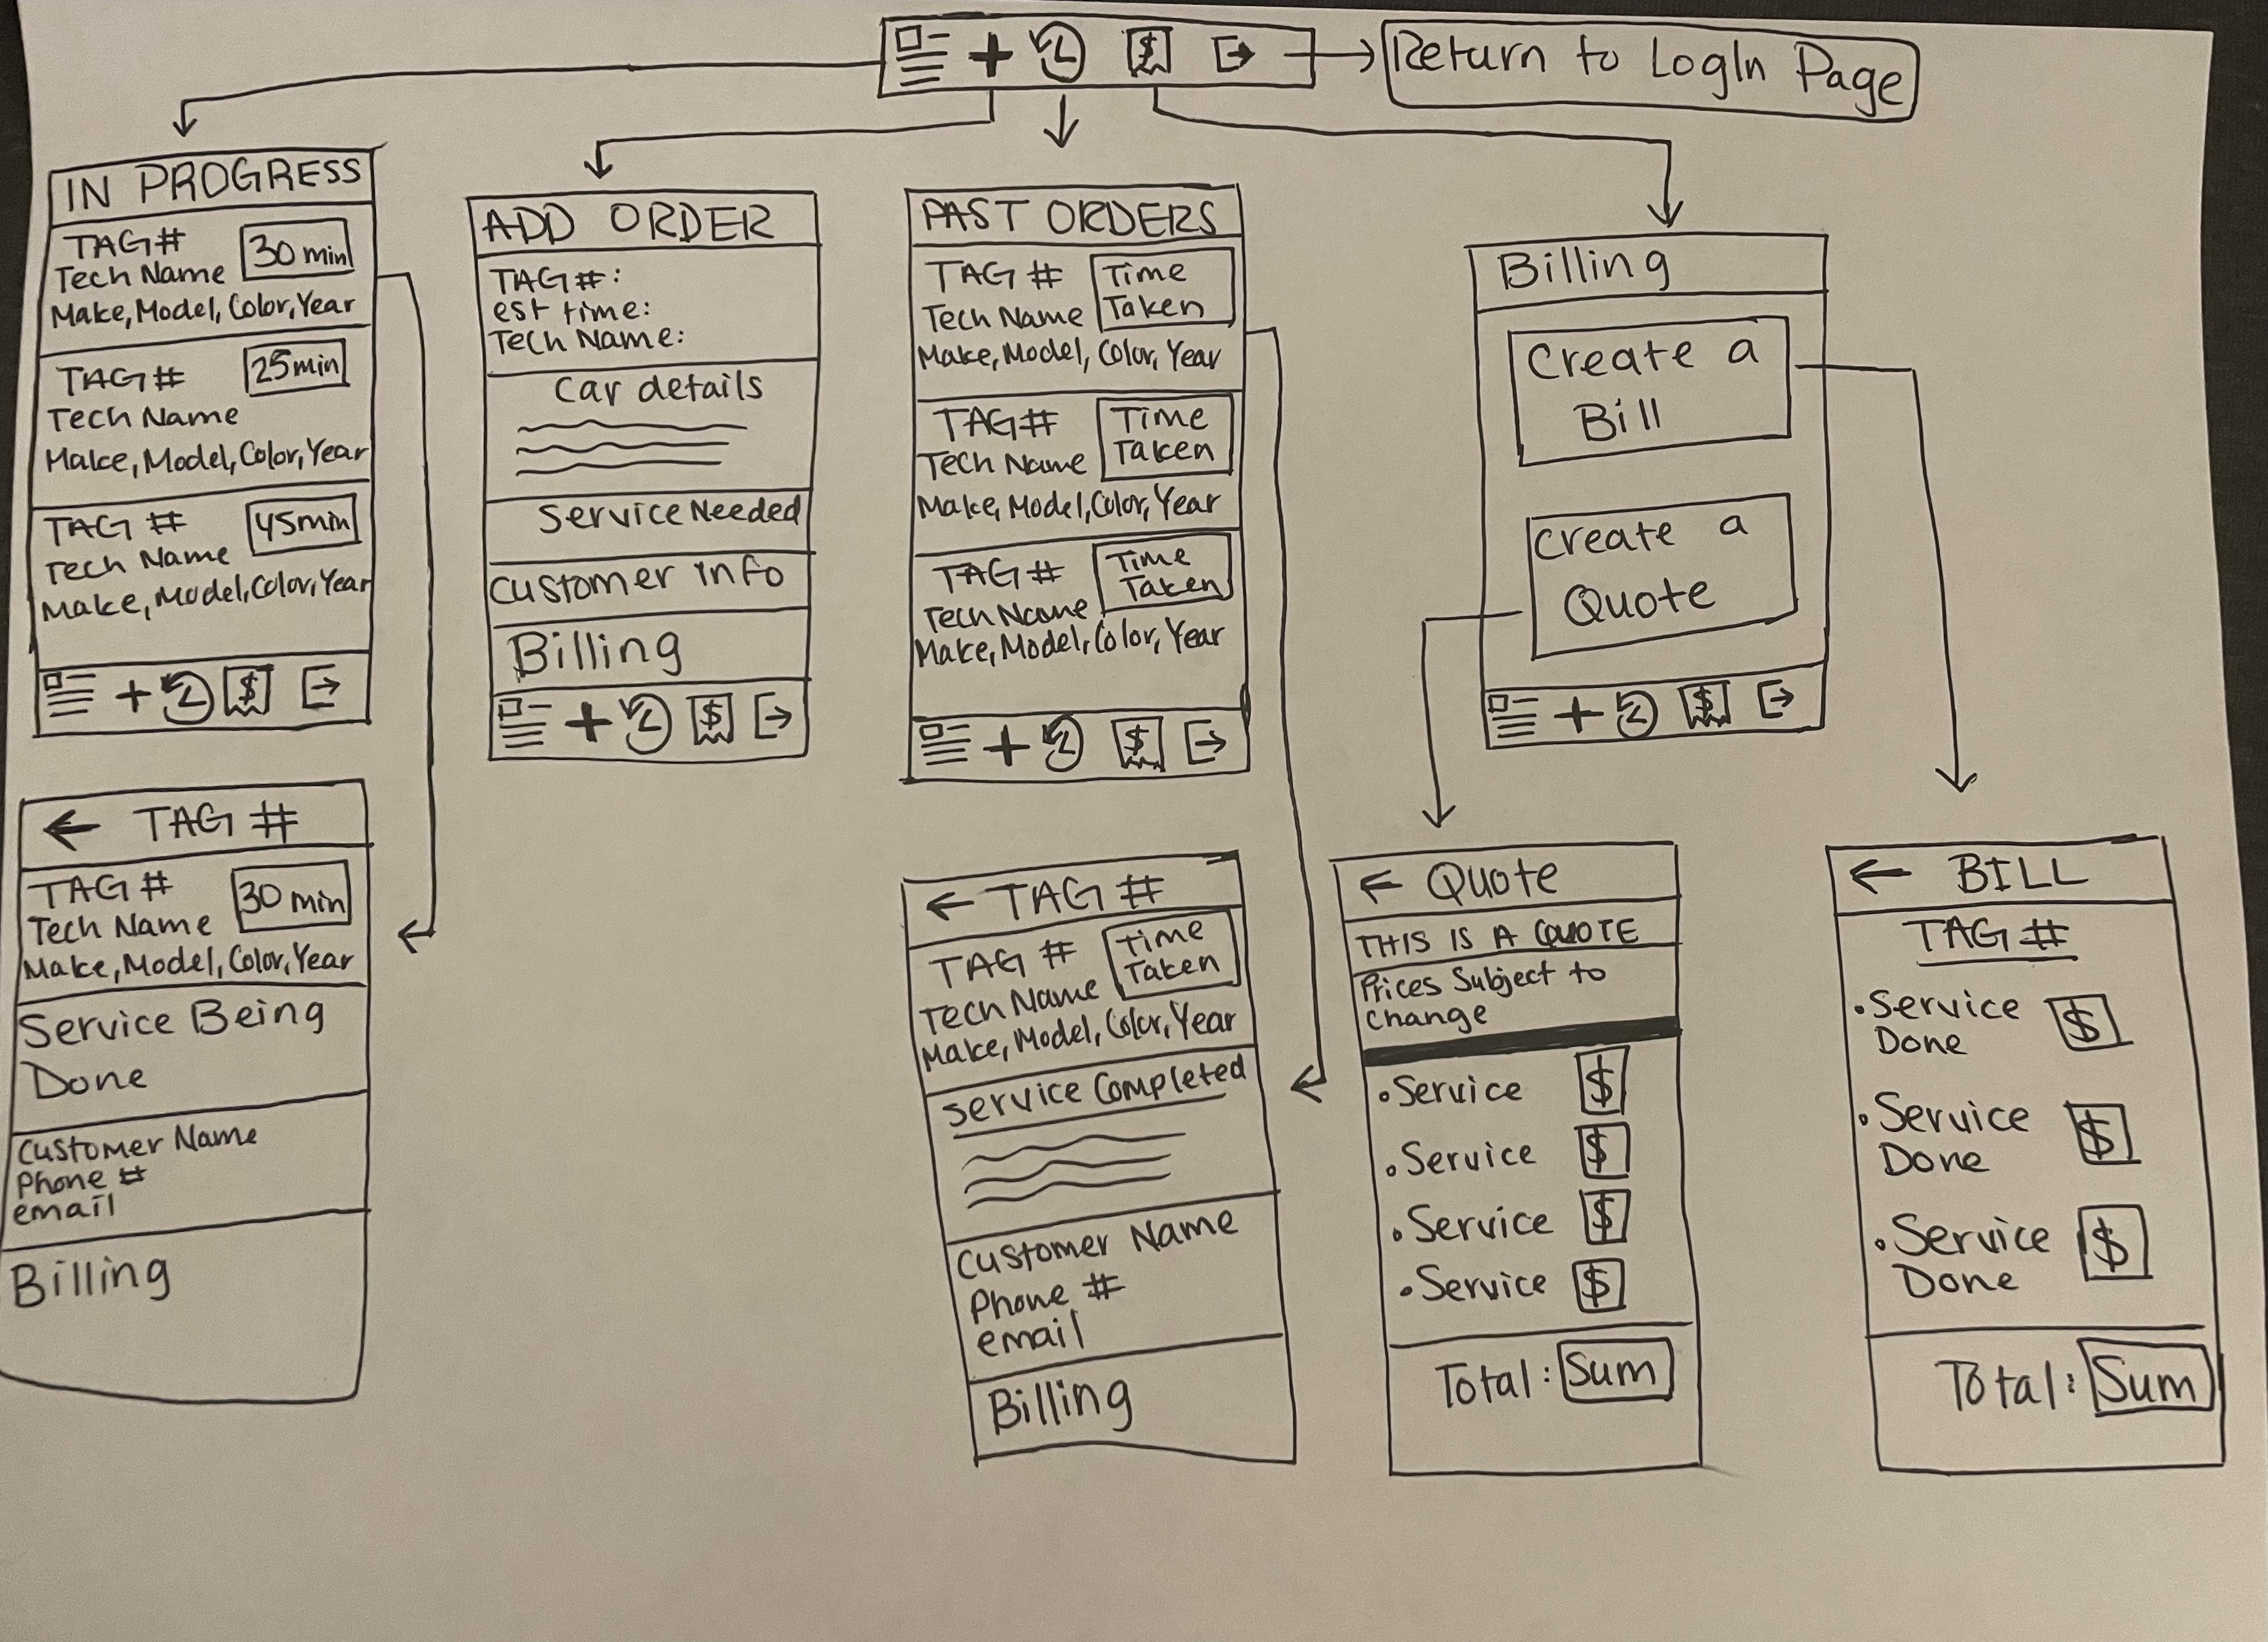 Return to LogIn Page
IN PROGRESS
TAG#
30 min
Tech Name
Make, Model, Color, Year
TAG#
25 min
Tech Name
Make, Model, Color, Year
TAG #
45 min
Tech Name
Make, Model, Color, Year
$
ADD ORDER
TAG #:
est time:
Tech Name:
Car details
Service Needed
Customer info
Billing
$
PAST ORDERS
TAG #
Time
Taken
Tech Name
Make, Model, Color, Year
TAG#
Time
Taken
Tech Name
Make, Model, Color, Year
TAG #
Time
Taken
Tech Name
Make, Model, Color, Year
$
Billing
Create a
Bill
Create a
Quote
$
← TAG #
TAG #
30 min
Tech Name
Make, Model, Color, Year
Service Being
Done
Customer Name
Phone #
email
Billing
← TAG #
TAG #
Time
Taken
Tech Name
Make, Model, Color, Year
Service Completed
Customer Name
Phone #
email
Billing
← Quote
THIS IS A QUOTE
Prices Subject to
change
• Service $
• Service $
• Service $
• Service $
Total: Sum
← BILL
TAG #
• Service
Done
$
• Service
Done
$
• Service
Done
$
Total: Sum